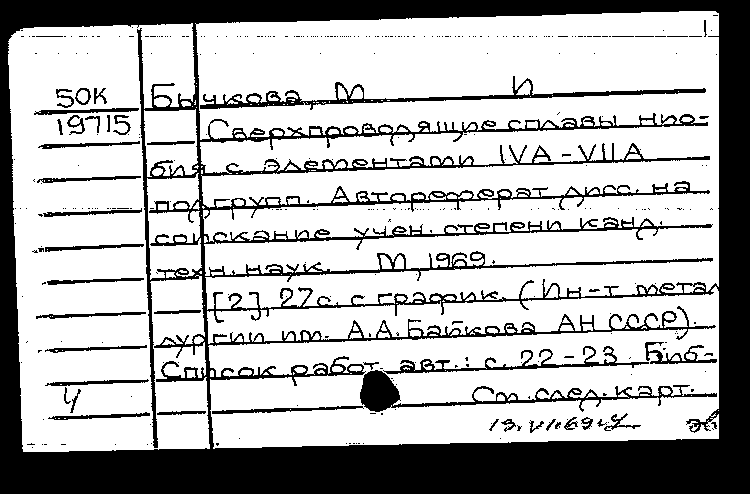 50К Бычкова, М И
19715 Сверхпроводящие сплавы нио-
бия с элементами IVА-VIIА
подгрупп. Автореферат дисс. на
соискание учен. степени канд.
техн. наук. М, 1969.
[2], 27с. с график. (Ин-т метал
лургии им. А.А. Байкова АН СССР).
Список работ авт.: с. 22-23. Биб-
Ч См. след. карт.